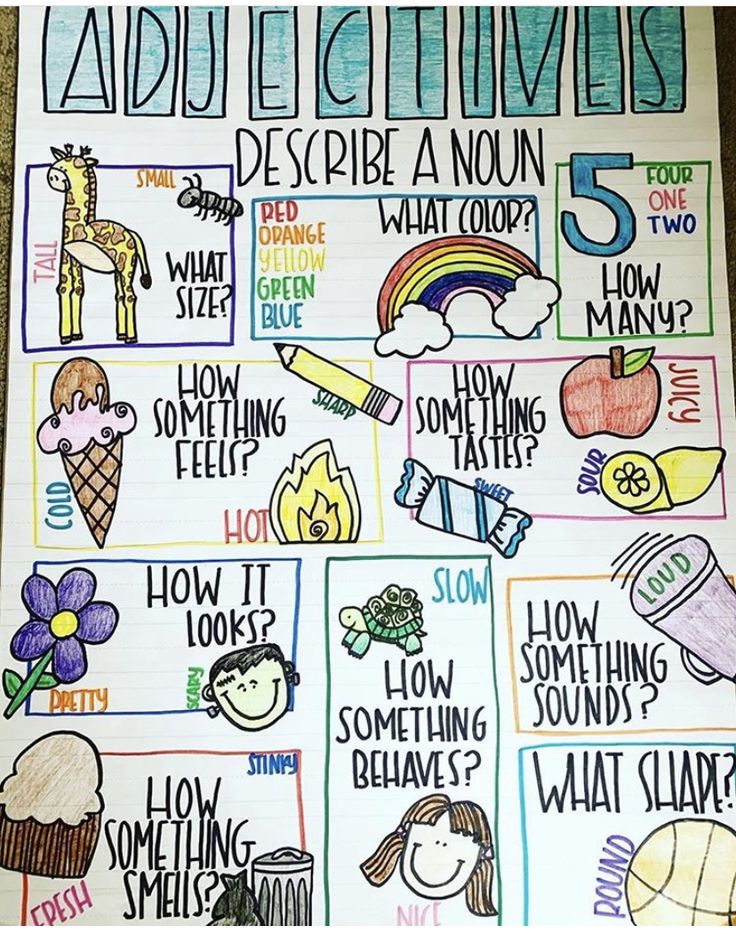 ADJECTIVES
DESCRIBE A NOUN
SMALL
TALL
WHAT
SIZE?
RED
ORANGE
YELLOW
GREEN
BLUE
WHAT COLOR?
5
FOUR
ONE
TWO
HOW
MANY?
HOW
SOMETHING
FEELS?
SHARP
COLD
HOT
HOW
SOMETHING
TASTES?
JUICY
SOUR
SWEET
HOW IT
LOOKS?
PRETTY
SCARY
SLOW
HOW
SOMETHING
BEHAVES?
NICE
LOUD
HOW
SOMETHING
SOUNDS?
STINKY
HOW
SOMETHING
SMELLS?
FRESH
WHAT SHAPE?
ROUND